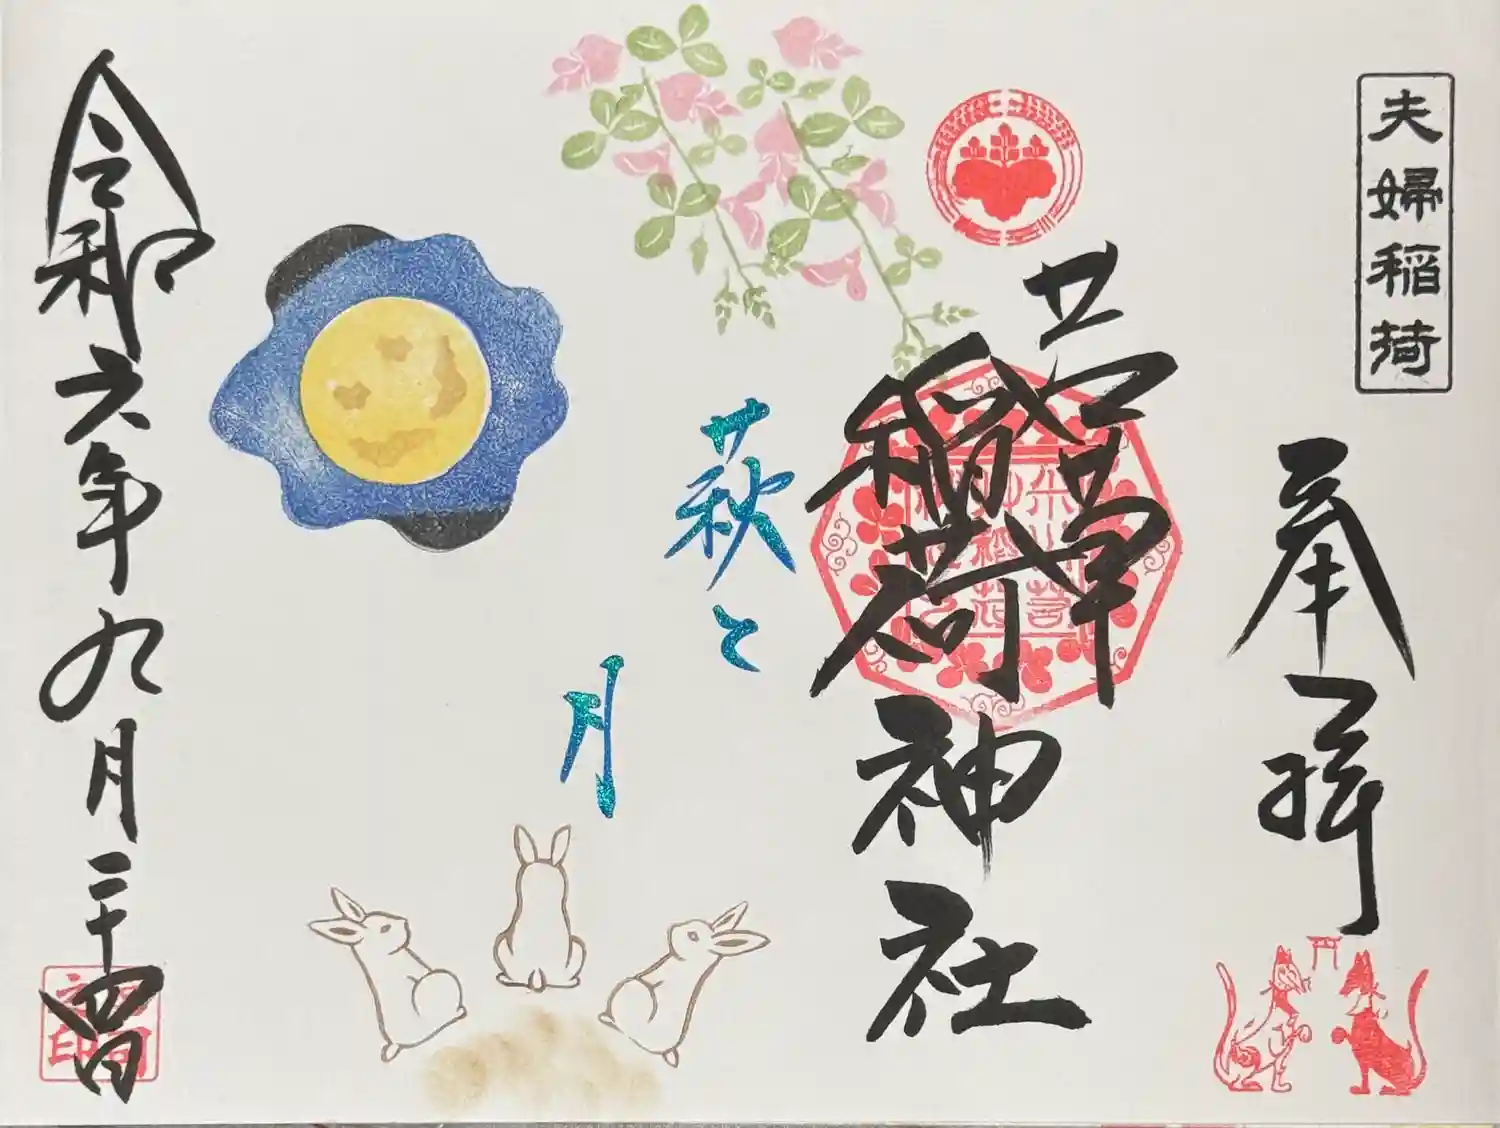 夫婦稲荷
奉拝
稲荷神社
萩と
月
令和六年九月二十四日